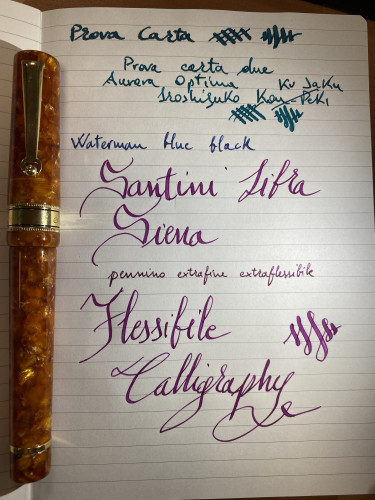 Prova Carta
Prova carta due
Aurora Optima Ku Jaku
Iroshizuko Kon-Peki
Waterman blue black
Santini Libra
Siena
pennino extrafine extraflessibile
Flessibile
Calligraphy